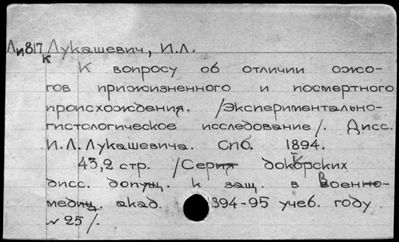 Ли817 Лукашевич, И.Л.
к К вопросу об отличии ожо-
гов прижизненного и посмертного
происхождения. /Экспериментально-
гистологическое исследование/. Дисс.
И.Л. Лукашевича. Спб. 1894.
43,2 стр. /Серия докторских
дисс. допущ. к защ. в Военно-
медиц. акад. 1894-95 учеб. году
№ 25/.